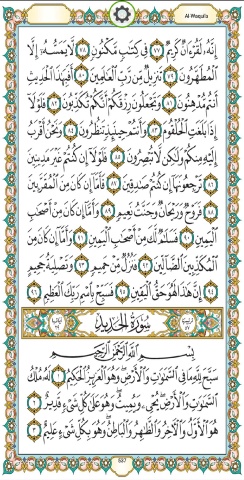 Al-Waqui'a
إِنَّهُ لَقُرْءَانٌ كَرِيمٌ ٧٧ فِى كِتَٰبٍ مَّكْنُونٍ ٧٨ لَّا يَمَسُّهُۥٓ إِلَّا
ٱلْمُطَهَّرُونَ ٧٩ تَنزِيلٌ مِّن رَّبِّ ٱلْعَٰلَمِينَ ٨٠ أَفَبِهَٰذَا ٱلْحَدِيثِ
أَنتُم مُّدْهِنُونَ ٨١ وَتَجْعَلُونَ رِزْقَكُمْ أَنَّكُمْ تُكَذِّبُونَ ٨٢ فَلَوْلَآ
إِذَا بَلَغَتِ ٱلْحُلْقُومَ ٨٣ وَأَنتُمْ حِينَئِذٍ تَنظُرُونَ ٨٤ وَنَحْنُ أَقْرَبُ
إِلَيْهِ مِنكُمْ وَلَٰكِن لَّا تُبْصِرُونَ ٨٥ فَلَوْلَآ إِن كُنتُمْ غَيْرَ مَدِينِينَ
٨٦ تَرْجِعُونَهَآ إِن كُنتُمْ صَٰدِقِينَ ٨٧ فَأَمَّآ إِن كَانَ مِنَ ٱلْمُقَرَّبِينَ
٨٨ فَرَوْحٌ وَرَيْحَانٌ وَجَنَّتُ نَعِيمٍ ٨٩ وَأَمَّآ إِن كَانَ مِنْ أَصْحَٰبِ
ٱلْيَمِينِ ٩٠ فَسَلَٰمٌ لَّكَ مِنْ أَصْحَٰبِ ٱلْيَمِينِ ٩١ وَأَمَّآ إِن كَانَ مِنَ
ٱلْمُكَذِّبِينَ ٱلضَّآلِّينَ ٩٢ فَنُزُلٌ مِّنْ حَمِيمٍ ٩٣ وَتَصْلِيَةُ جَحِيمٍ
٩٤ إِنَّ هَٰذَا لَهُوَ حَقُّ ٱلْيَقِينِ ٩٥ فَسَبِّحْ بِٱسْمِ رَبِّكَ ٱلْعَظِيمِ ٩٦
سُورَةُ الْحَدِيدِ
بِسْمِ ٱللَّهِ ٱلرَّحْمَٰنِ ٱلرَّحِيمِ
سَبَّحَ لِلَّهِ مَا فِى ٱلسَّمَٰوَٰتِ وَٱلْأَرْضِ وَهُوَ ٱلْعَزِيزُ ٱلْحَكِيمُ ١ لَهُۥ مُلْكُ
ٱلسَّمَٰوَٰتِ وَٱلْأَرْضِ يُحْىِۦ وَيُمِيتُ وَهُوَ عَلَىٰ كُلِّ شَىْءٍ قَدِيرٌ ٢
هُوَ ٱلْأَوَّلُ وَٱلْءَاخِرُ وَٱلظَّٰهِرُ وَٱلْبَاطِنُ وَهُوَ بِكُلِّ شَىْءٍ عَلِيمٌ ٣
537